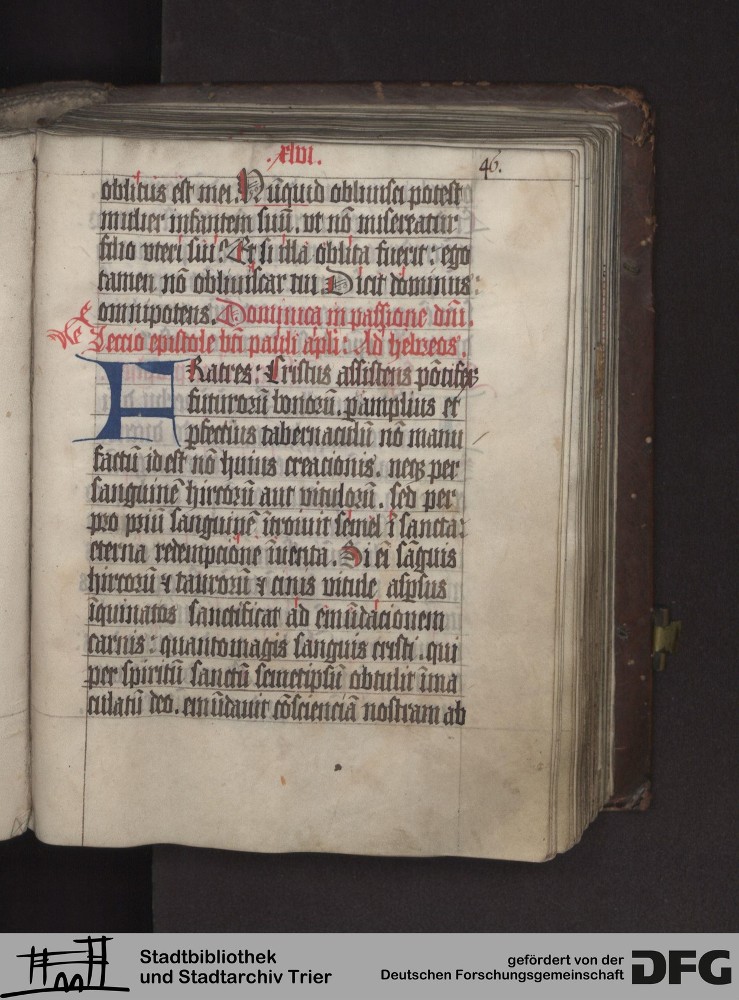 .xlvi.
46.
oblitus est mei. Nūquid obliuisci potest
mulier infantem suū. vt nō misereatur
filio vteri sui? Et si illa oblita fuerit: ego
tamen nō obliuiscar tui Dicit dominus
omnipotens. Dominica in passione dn̄i.
Leccio epistole bt̄i pauli apl̄i: Ad hebreos.
FRatres: Cristus assistens pōtifex
futurorū bonorū. p amplius et
pfectius tabernaculū nō manu
factū id est nō huius creacionis. neqꝫ per
sanguinē hircorū aut vitulorū. sed per
pro priū sanguinē ītroiuit semel ī sancta:
eterna redempcione īuenta. Si eī sāguis
hircorū ⁊ taurorū ⁊ cinis vitule aspsus
īquinatos sanctificat ad emūdacionem
carnis: quanto magis sanguis cristi. qui
per spiritū sanctū semetipsū obtulit īma
culatū deo. emūdauit cōsciencīā nostram ab
Stadtbibliothek
und Stadtarchiv Trier
gefördert von der
Deutschen Forschungsgemeinschaft
DFG